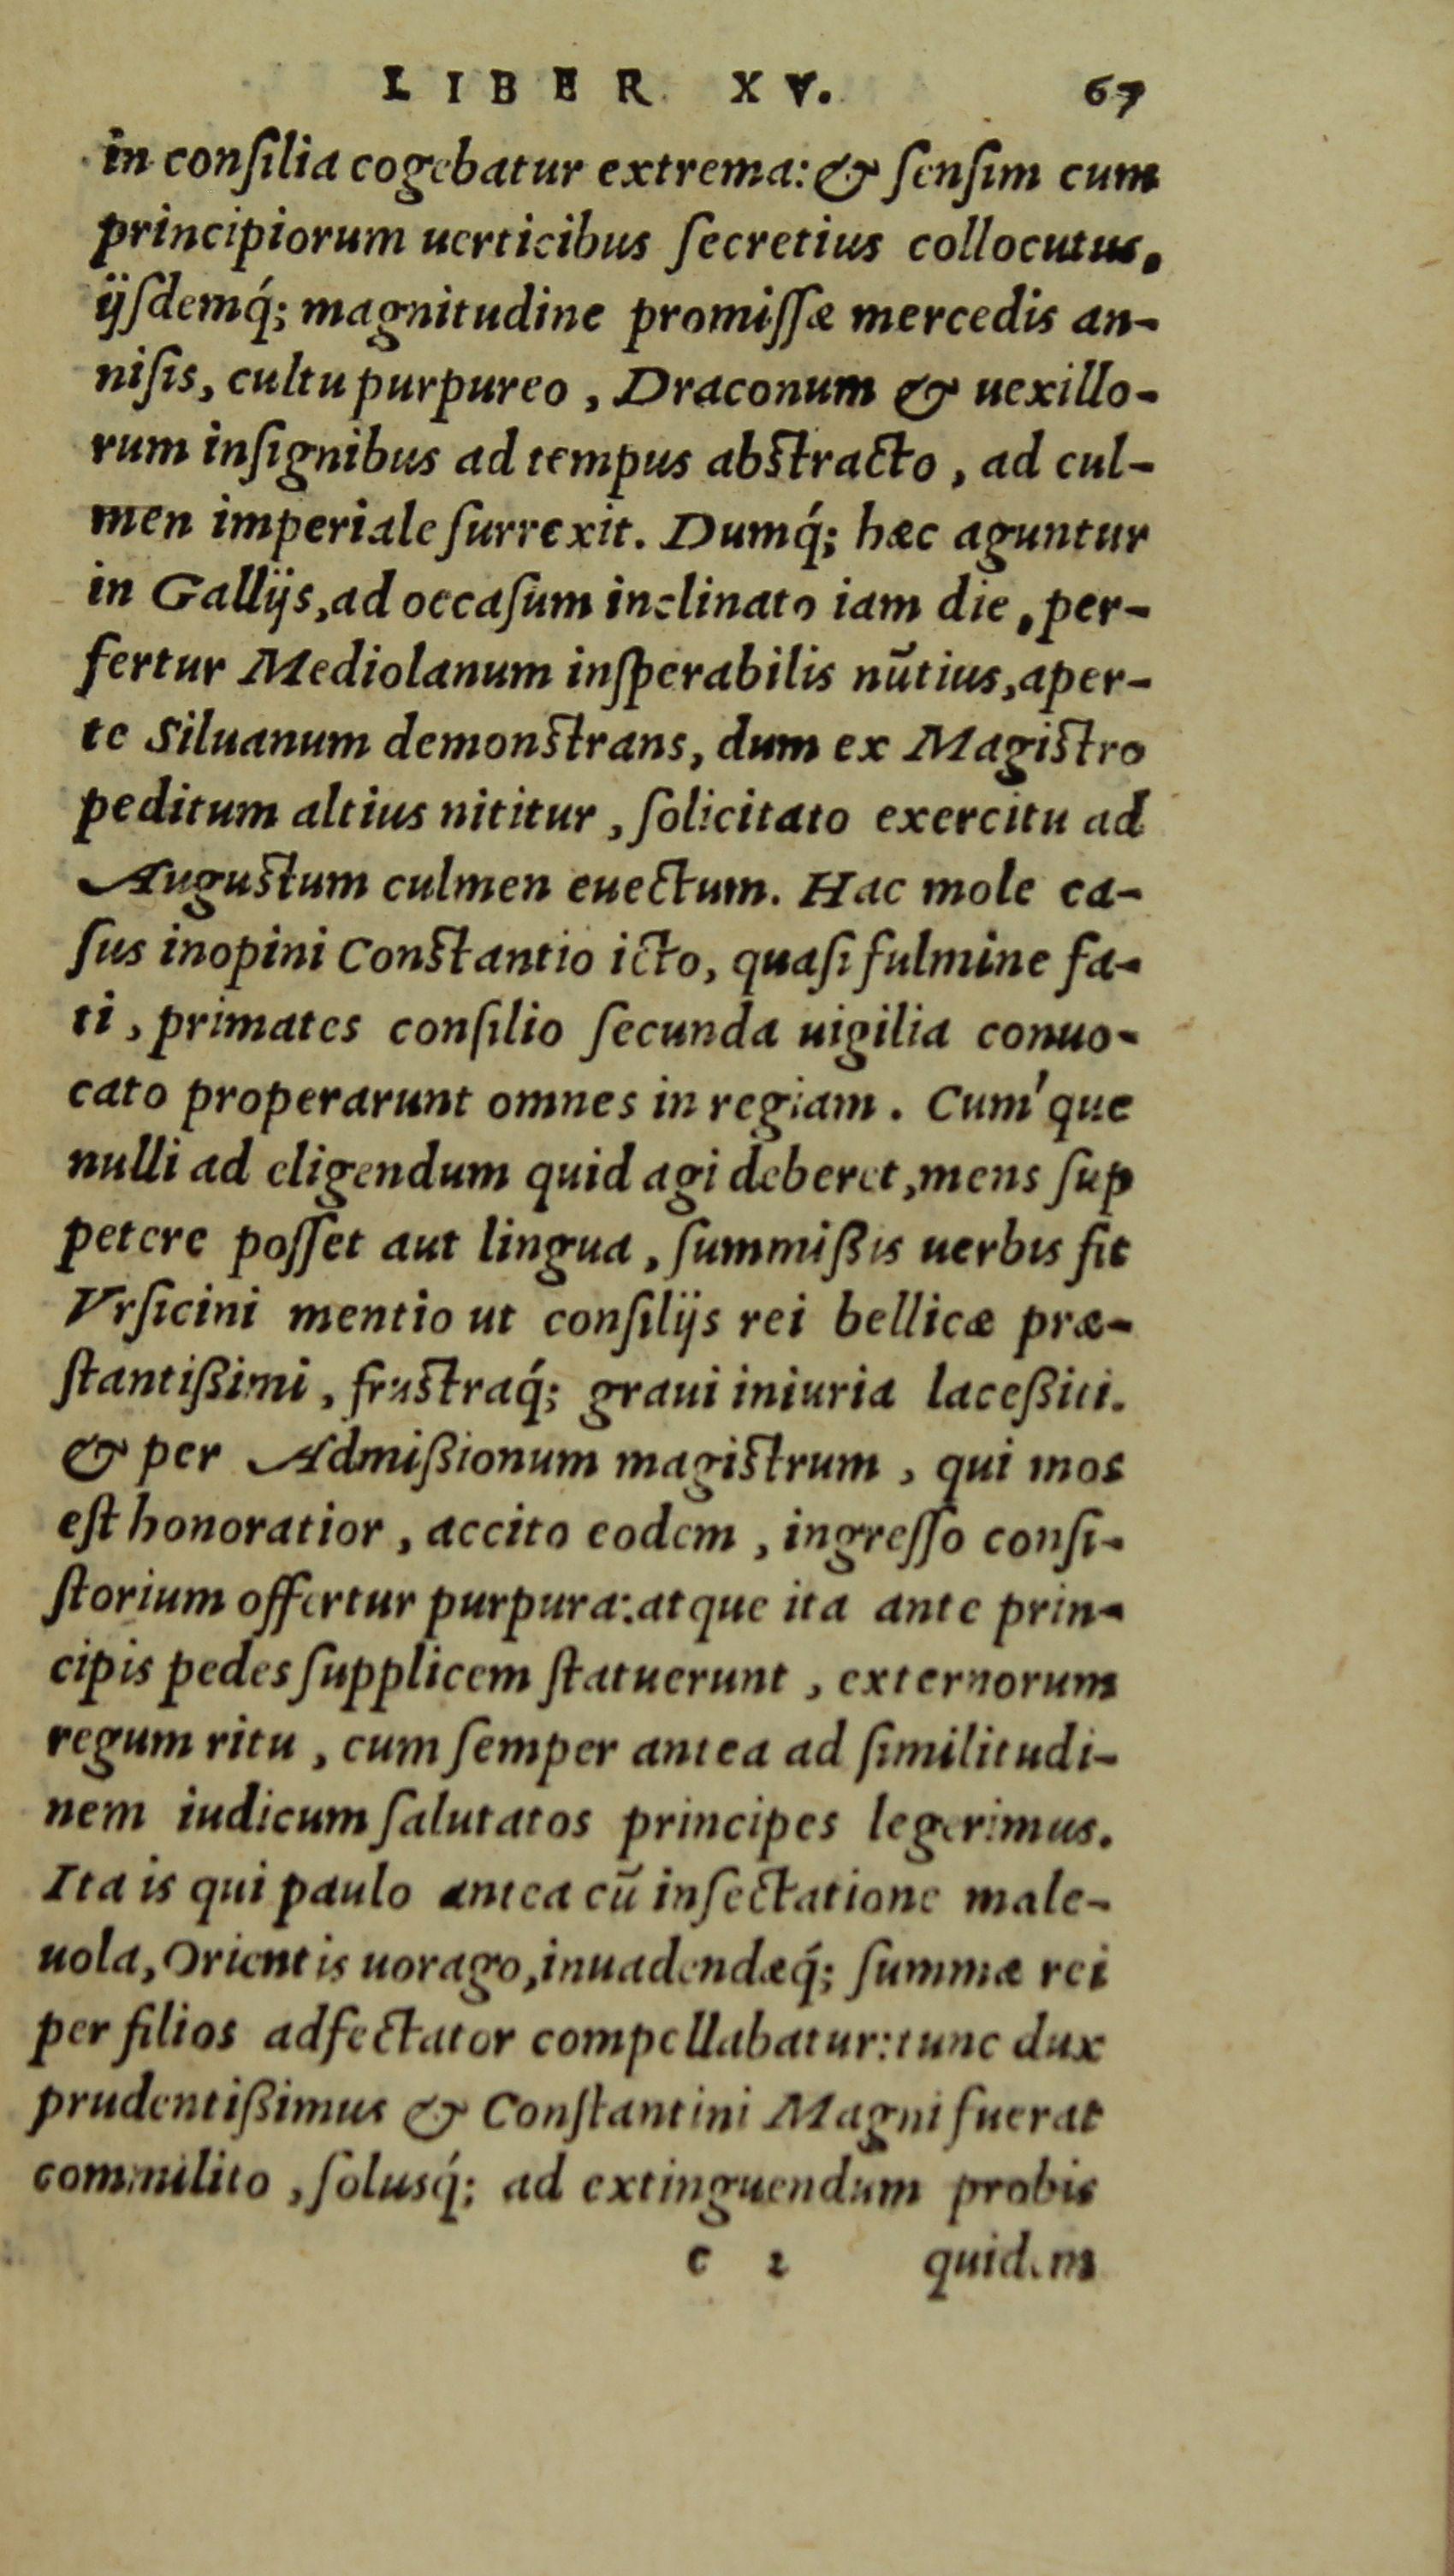 LIBER XV. 67
in conſilia cogebatur extrema: & ſenſim cum
principiorum uerticibus ſecretius collocutus,
ijſdemq́; magnitudine promiſſæ mercedis an-
niſis, cultu purpureo, Draconum & uexillo-
rum inſignibus ad tempus abſtracto, ad cul-
men imperiale ſurrexit. Dumq́; hæc aguntur
in Gallijs, ad occaſum inclinato iam die, per-
fertur Mediolanum inſperabilis nũtius, aper-
te Siluanum demonſtrans, dum ex Magiſtro
peditum altius nititur, ſolicitato exercitu ad
Auguſtum culmen euectum. Hac mole ca-
ſus inopini Conſtantio icto, quaſi fulmine fa-
ti, primates conſilio ſecunda uigilia conuo-
cato properarunt omnes in regiam. Cum'que
nulli ad eligendum quid agi deberet, mens ſup
petere poſſet aut lingua, ſummißis uerbis fit
Vrſicini mentio ut conſilijs rei bellicæ præ-
ſtantißimi, fruſtraq́; graui iniuria laceßiti.
& per Admißionum magiſtrum, qui mos
eſt honoratior, accito eodem, ingreſſo conſi-
ſtorium offertur purpura: atque ita ante prin-
cipis pedes ſupplicem ſtatuerunt, externorum
regum ritu, cum ſemper antea ad ſimilitudi-
nem iudicum ſalutatos principes legerimus.
Ita is qui paulo antea cũ inſectatione male-
uola, Orientis uorago, inuadendæq́; ſummæ rei
per filios adfectator compellabatur: tunc dux
prudentißimus & Conſtantini Magni fuerat
commilito, ſolusq́; ad extinguendum probis
c 2 quidem